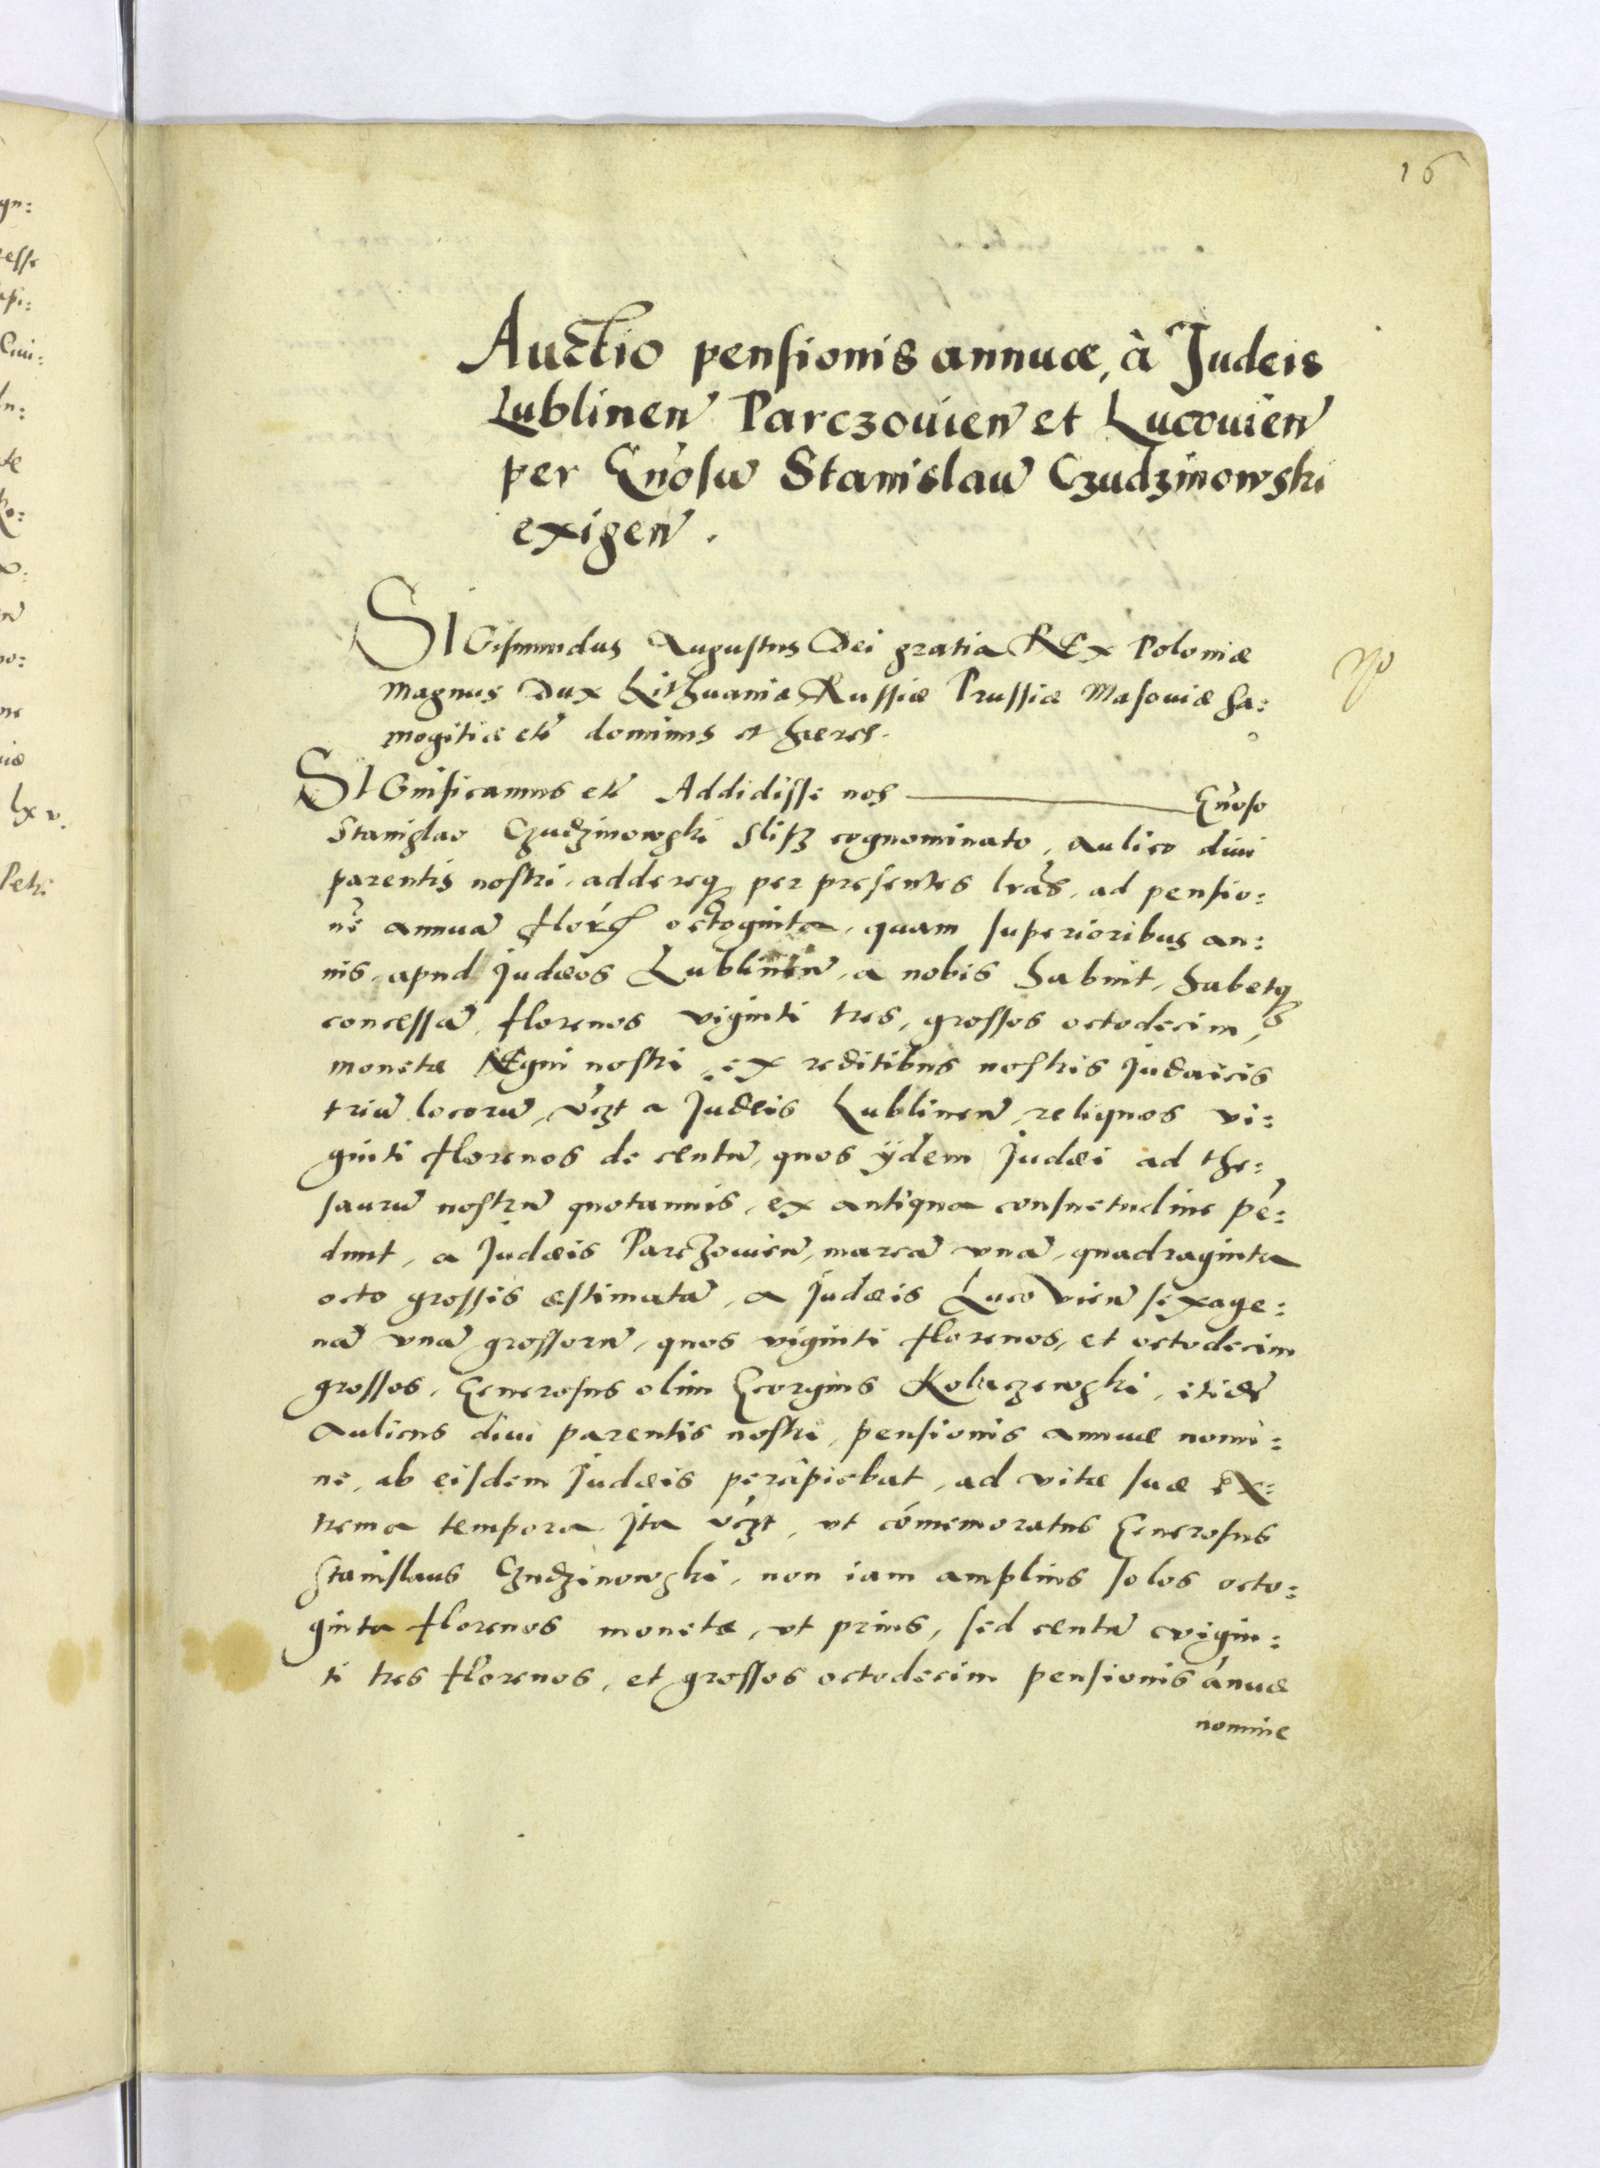 16
Auctio pensionis annuæ, à Judeis
Lublinen̄ Parczovien̄ et Lucovien̄
per Gn̄osū Stanislaū Czudzinowski
exigen̄.
SIGismundus Augustus Dei gratia REx Poloniæ
Magnus Dux Lithuaniæ Russiæ Prussiæ Masoviæ Sa:
mogitiæ etc̄ dominus et hæres.
SIGnificamus etc̄ Addidisse nos ——— Gn̄oso
Stanislao Czudzinowski Slisz cognominato, Aulico divi
parentis nostri, addereq; per presentes lr̄as, ad pensio:
nē annuā flor̄ octoginta, quam superioribus an:
nis, apud Judæos Lublinen̄, a nobis habuit, habetq;
concessā, florenos viginti tres, grossos octodecim,
monetæ REgni nostri, ex reditibus nostris Judaicis
triū locorū, vc̄zt a Judeis Lublinen̄, reliquos vi:
ginti florenos de centū, quos ijdem Judæi ad the:
saurū nostrū quotannis, ex antiqua consuetudine pē:
dunt, a Judæis Parczovien̄, marcā vnā, quadraginta
octo grossis æstimatā, a Judæis Lucovien̄ sexage:
nā vnā grossorū, quos viginti florenos, et octodecim
grossos, Generosus olim Georgius Kobaczewski, itidē
Aulicus divi parentis nostri, pensionis annuæ nomi:
ne, ab eisdem Judæis percipiebat, ad vitæ suæ ex:
trema tempora Ita vc̄zt, vt cōmemoratus Generosus
Stanislaus Czudzinowski, non iam amplius solos octo:
ginta florenos monetæ, vt prius, sed centū vigin:
ti tres florenos, et grossos octodecim pensionis ānuæ
nomine